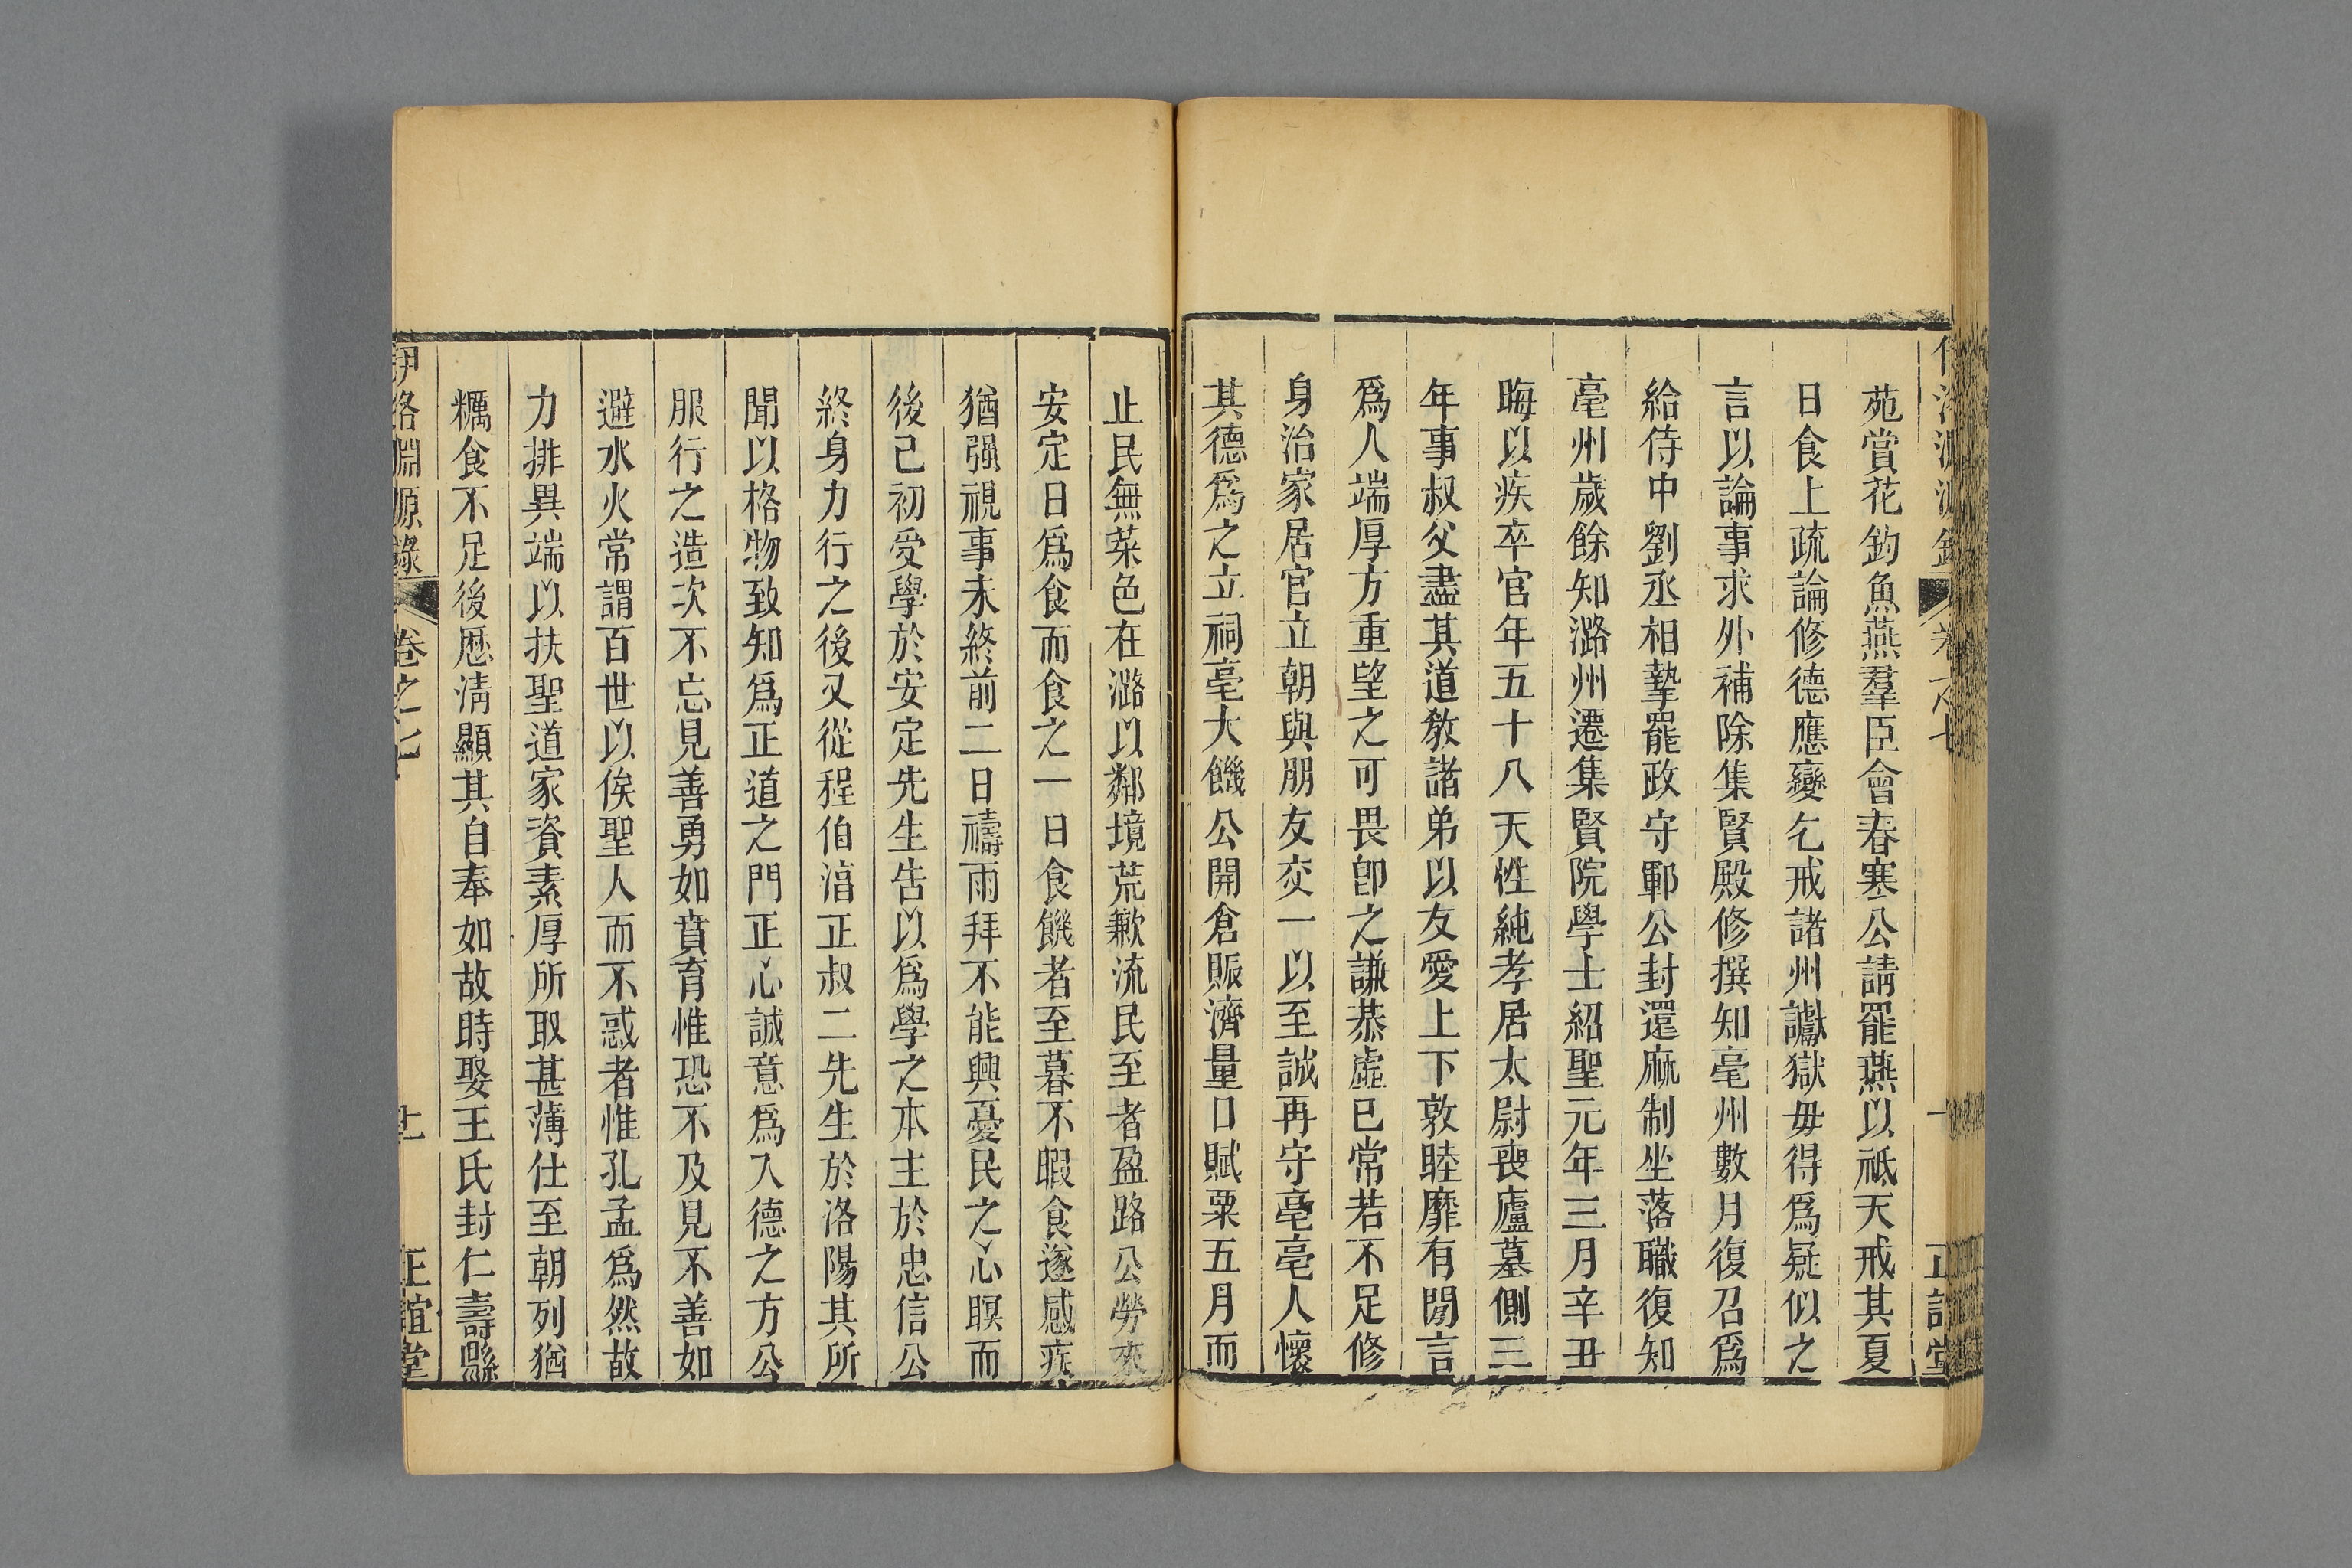 苑賞花釣魚燕羣臣會春寒公請罷燕以祗天戒其夏
日食上疏論修德應變乞戒諸州讞獄毋得爲疑似之
言以論事求外補除集賢殿修撰知亳州數月復召爲
給侍中劉丞相摯罷政守鄆公封還麻制坐落職復知
亳州歲餘知潞州遷集賢院學士紹聖元年三月辛丑
晦以疾卒官年五十八天性純孝居太尉喪廬墓側三
年事叔父盡其道敎諸弟以友愛上下敦睦靡有閒言
爲人端厚方重望之可畏卽之謙恭虛已常若不足修
身治家居官立朝與朋友交一以至誠再守亳亳人懷
其德爲之立祠亳大饑公開倉賑濟量口賦粟五月而
止民無菜色在潞以鄰境荒歉流民至者盈路公勞來
安定日爲食而食之一日食饑者至暮不暇食遂感疾
猶强視事未終前二日禱雨拜不能興憂民之心瞑而
後已初受學於安定先生告以爲學之本主於忠信公
終身力行之後又從程伯淳正叔二先生於洛陽其所
聞以格物致知爲正道之門正心誠意爲入德之方公
服行之造次不忘見善勇如賁育惟恐不及見不善如
避水火常謂百世以俟聖人而不惑者惟孔孟爲然故
力排異端以扶聖道家資素厚所取甚薄仕至朝列猶
糲食不足後歷淸顯其自奉如故時娶王氏封仁壽縣
伊洛淵源錄 卷之七 十一 正誼堂